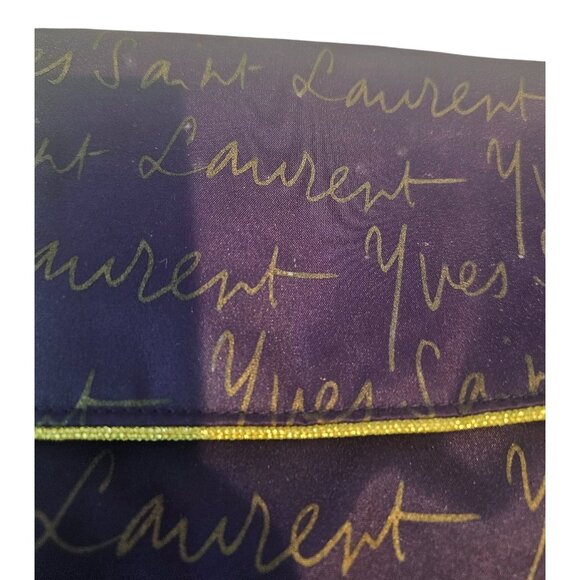 Yves Saint Laurent
Saint Laurent Yves
Laurent Yves S
Yves Sain
Laurent Y